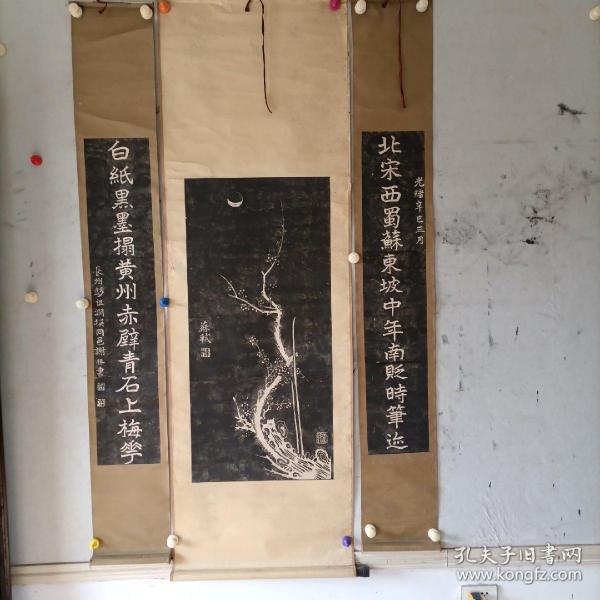 北宋西蜀蘇東坡中年南貶時筆迹
光緒辛巳三月
蘇軾
白紙黑墨搨黃州赤壁青石上梅花
長洲彭祖潤撰同邑謝
孔夫子旧書网
www.kongfz.com